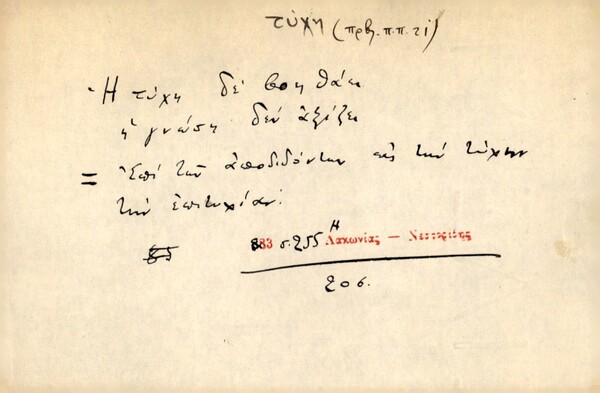 τύχη (πρβ. π.π. γί)
Ἡ τύχη δέ βοηθάει
ἡ γνώση δέν ἀξίζει
= Ἐπί τῶν ἀποδιδόντων εἰς τήν τύχην
τήν ἐπιτυχίαν.
883 σ. 255 Η Λακωνίας — Νεστορίδης
206.